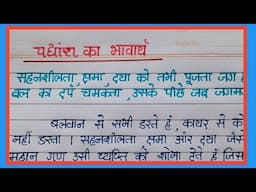 पद्यांश का भावार्थ
सहनशीलता, क्षमा, दया को तभी पूजता जग ह
बल का दर्प चमकता, उसके पीछे जब जगमग
बलवान से सभी डरते हैं, कायर से को
नहीं डरता। सहनशीलता, क्षमा और दया जैस
महान गुण उसी व्यक्ति को शोभा देते हैं जिस